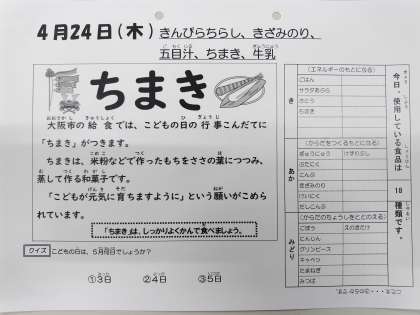 4月24日(木) きんぴらちらし、きざみのり、
五目汁、ちまき、牛乳
ちまき
大阪市の給食では、こどもの日の行事こんだてに
「ちまき」がつきます。
ちまきは、米粉などで作ったもちをささの葉につつみ、
蒸して作る和菓子です。
「こどもが元気に育ちますように」という願いがこめら
れています。
「ちまき」は、しっかりよくかんで食べましょう。
クイズ こどもの日は、5月何日でしょうか?
①3日 ②4日 ③5日
今日、使用している食品は 18 種類です。
き
(エネルギーのもとになる)
ごはん
サラダあぶら
さとう
ちまき
あか
(からだをつくるもとになる)
ぎゅうにゅう けずりぶし
ぶたにく
こんぶ
きざみのり
けいにく
だしこんぶ
みどり
(からだのちょうしをととのえる)
ごぼう えのきたけ
にんじん
グリンピース
キャベツ
たまねぎ
みつば